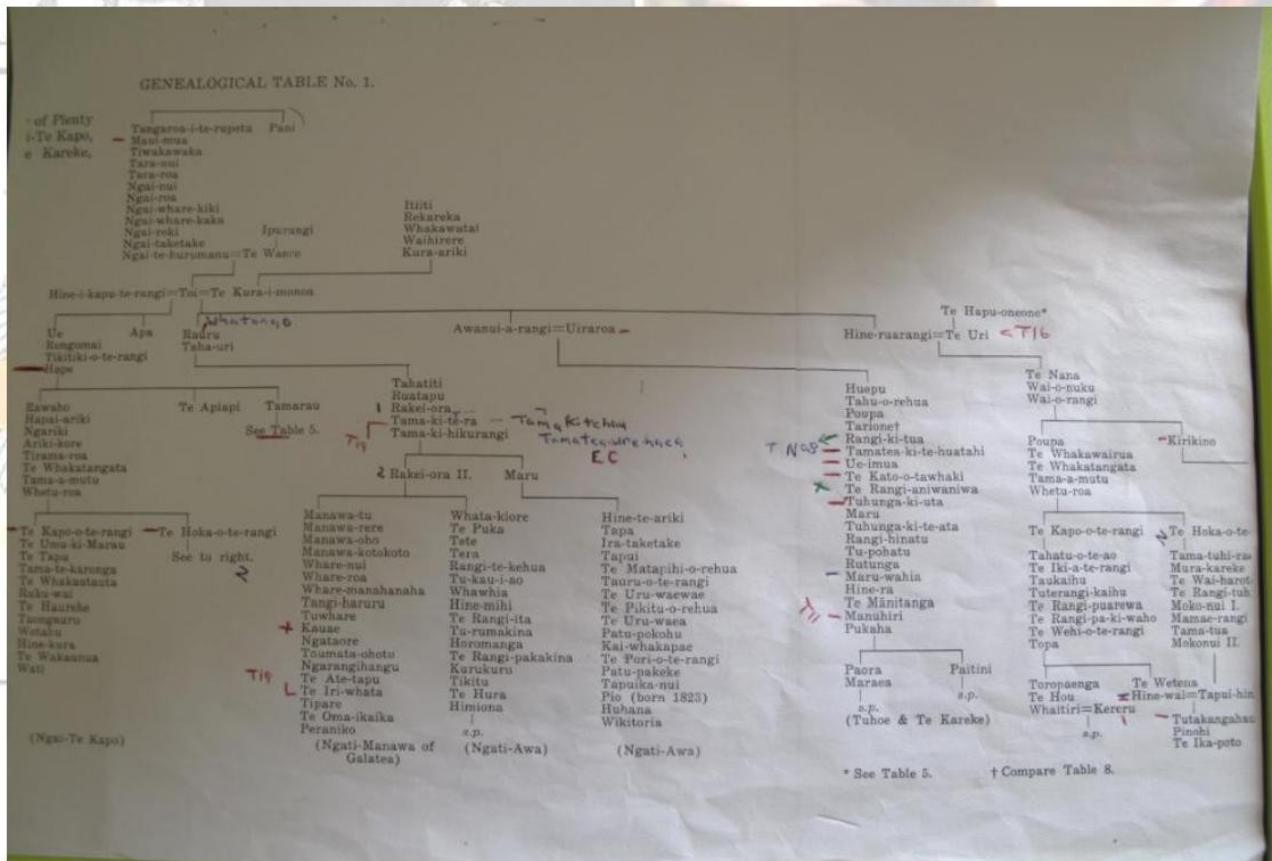 GENEALOGICAL TABLE No. 1.
of Plenty
i-Te Kapo,
e Kareke,
Tangaroa-i-te-rupetu Pani
Maui-mua
Tiwakawaka
Tara-nui
Tara-roa
Ngai-nui
Ngai-roa
Ngai-whare-kiki
Ngai-whare-kaka
Ngai-roki
Ngai-taketake
Ipurangi
Ngai-te-hurumanu=Te Waero
Itiiti
Rekareka
Whakawatai
Waihirere
Kura-ariki
Hine-i-kapu-te-rangi=Toi=Te Kura-i-monoa
Ue Apa
Rongomai
Tikitiki-o-te-rangi
Hape
Whatonga
Rauru
Taha-uri
Awanui-a-rangi=Uiraroa
Te Hapu-oneone*
Hine-ruarangi=Te Uri <T16
Rawaho
Hapai-ariki
Ngariki
Ariki-kore
Tirama-roa
Te Whakatangata
Tama-a-mutu
Whetu-roa
Te Apiapi
Tamarau
See Table 5.
Tahatiti
Ruatapu
1 Rakei-ora
T19 Tama-ki-te-ra
Tama-ki-hikurangi
EC
2 Rakei-ora II. Maru
Te Kapo-o-te-rangi
Te Umu-ki-Marau
Te Tapu
Tama-te-karonga
Te Whakastauta
Raku-wai
Te Haureke
Taongauru
Wetahu
Hine-kura
Te Wakaunua
Wati
(Ngai-Te Kapo)
Te Hoka-o-te-rangi
See to right.
2
Manawa-tu
Manawa-rere
Manawa-oho
Manawa-kotokoto
Whare-nui
Whare-roa
Whare-manahanaha
Tangi-haruru
Tuwhare
Kauae
Ngataore
Toumata-ohotu
Ngarangihangu
Te Ate-tapu
T19 Te Iri-whata
Tipare
Te Oma-ikaika
Peraniko
(Ngati-Manawa of
Galatea)
Whata-kiore
Te Puka
Tete
Tera
Rangi-te-kehua
Tu-kau-i-ao
Whawhia
Hine-mihi
Te Rangi-ita
Tu-rumakina
Horomanga
Te Rangi-pakakina
Kurukuru
Tikitu
Te Hura
Himiona
s.p.
(Ngati-Awa)
Hine-te-ariki
Tapa
Ira-taketake
Tapui
Te Matapihi-o-rehua
Tauru-o-te-rangi
Te Uru-waewae
Te Pikitu-o-rehua
Te Uru-waea
Patu-pokohu
Kai-whakapae
Te Pori-o-te-rangi
Patu-pakeke
Tapuika-nui
Pio (born 1823)
Huhana
Wikitoria
(Ngati-Awa)
Huepu
Tahu-o-rehua
Poupa
Tarione†
T No8 Rangi-ki-tua
Tamatea-ki-te-huatahi
Ue-imua
Te Kato-o-tawhaki
Te Rangi-aniwaniwa
Tuhunga-ki-uta
Maru
Tuhunga-ki-te-ata
Rangi-hinatu
Tu-pohatu
Rutunga
Maru-wahia
Hine-ra
Te Mānitanga
T11 Manuhiri
Pukaha
Paora Paitini
Maraea s.p.
s.p.
(Tuhoe & Te Kareke)
Te Nana
Wai-o-nuku
Wai-o-rangi
Poupa
Te Whakawairua
Te Whakatangata
Tama-a-mutu
Whetu-roa
Kirikino
Te Kapo-o-te-rangi
Tahatu-o-te-ao
Te Iki-a-te-rangi
Taukaihu
Tuterangi-kaihu
Te Rangi-puarewa
Te Rangi-pa-ki-waho
Te Wehi-o-te-rangi
Topa
Toropaenga
Te Hou
Whaitiri=Kereru
s.p.
2 Te Hoka-o-te-
Tama-tuhi-rae
Mura-kareke
Te Wai-harot
Te Rangi-tuh
Moko-nui I.
Mamae-rangi
Tama-tua
Mokonui II.
Te Wetena
Hine-wai=Tapui-hin
Tutakangahau
Pinohi
Te Ika-poto
* See Table 5. † Compare Table 8.